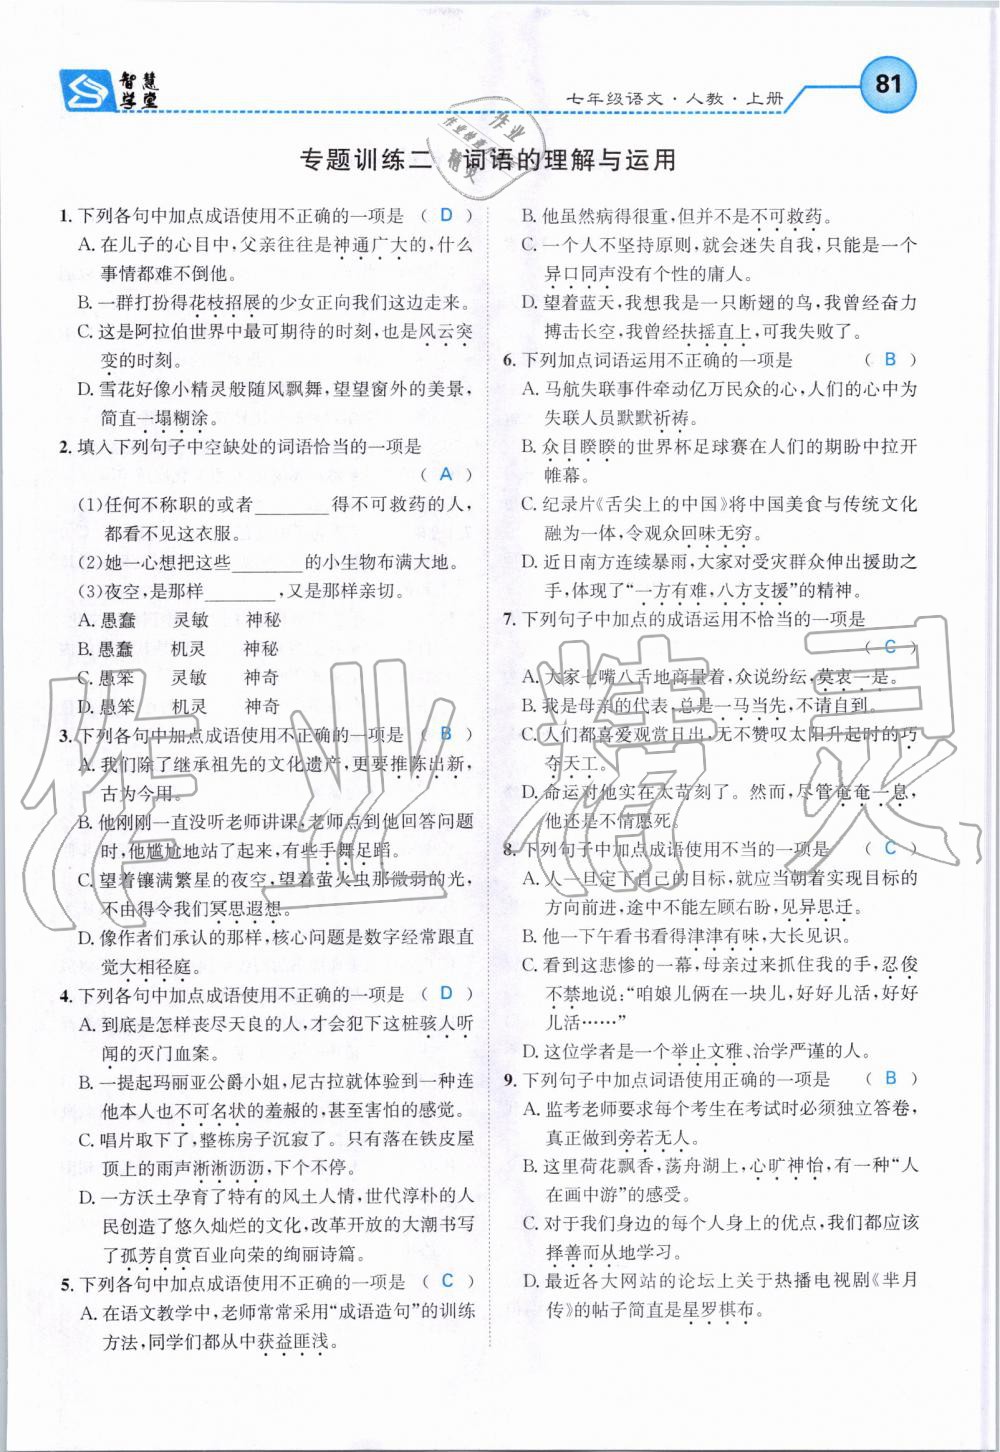 智慧
学堂
七年级语文·人教·上册
81
专题训练二 词语的理解与运用
1. 下列各句中加点成语使用不正确的一项是 ( D )
A. 在儿子的心目中,父亲往往是神通广大的,什么
事情都难不倒他。
B. 一群打扮得花枝招展的少女正向我们这边走来。
C. 这是阿拉伯世界中最可期待的时刻,也是风云突
变的时刻。
D. 雪花好像小精灵般随风飘舞,望望窗外的美景,
简直一塌糊涂。
2. 填入下列句子中空缺处的词语恰当的一项是
( A )
(1)任何不称职的或者________得不可救药的人,
都看不见这衣服。
(2)她一心想把这些________的小生物布满大地。
(3)夜空,是那样________,又是那样亲切。
A. 愚蠢 灵敏 神秘
B. 愚蠢 机灵 神秘
C. 愚笨 灵敏 神奇
D. 愚笨 机灵 神奇
3. 下列各句中加点成语使用不正确的一项是 ( B )
A. 我们除了继承祖先的文化遗产,更要推陈出新,
古为今用。
B. 他刚刚一直没听老师讲课,老师点到他回答问题
时,他尴尬地站了起来,有些手舞足蹈。
C. 望着镶满繁星的夜空,望着萤火虫那微弱的光,
不由得令我们冥思遐想。
D. 像作者们承认的那样,核心问题是数字经常跟直
觉大相径庭。
4. 下列各句中加点成语使用不正确的一项是 ( D )
A. 到底是怎样丧尽天良的人,才会犯下这桩骇人听
闻的灭门血案。
B. 一提起玛丽亚公爵小姐,尼古拉就体验到一种连
他本人也不可名状的羞赧的,甚至害怕的感觉。
C. 唱片取下了,整栋房子沉寂了。只有落在铁皮屋
顶上的雨声淅淅沥沥,下个不停。
D. 一方沃土孕育了特有的风土人情,世代淳朴的人
民创造了悠久灿烂的文化,改革开放的大潮书写
了孤芳自赏百业向荣的绚丽诗篇。
5. 下列各句中加点成语使用不正确的一项是 ( C )
A. 在语文教学中,老师常常采用“成语造句”的训练
方法,同学们都从中获益匪浅。
B. 他虽然病得很重,但并不是不可救药。
C. 一个人不坚持原则,就会迷失自我,只能是一个
异口同声没有个性的庸人。
D. 望着蓝天,我想我是一只断翅的鸟,我曾经奋力
搏击长空,我曾经扶摇直上,可我失败了。
6. 下列加点词语运用不正确的一项是 ( B )
A. 马航失联事件牵动亿万民众的心,人们的心中为
失联人员默默祈祷。
B. 众目睽睽的世界杯足球赛在人们的期盼中拉开
帷幕。
C. 纪录片《舌尖上的中国》将中国美食与传统文化
融为一体,令观众回味无穷。
D. 近日南方连续暴雨,大家对受灾群众伸出援助之
手,体现了“一方有难,八方支援”的精神。
7. 下列句子中加点的成语运用不恰当的一项是
( C )
A. 大家七嘴八舌地商量着,众说纷纭,莫衷一是。
B. 我是母亲的代表,总是一马当先,不请自到。
C. 人们都喜爱观赏日出,无不赞叹太阳升起时的巧
夺天工。
D. 命运对他实在太苛刻了。然而,尽管奄奄一息,
他还是不情愿死。
8. 下列句子中加点成语使用不当的一项是 ( C )
A. 人一旦定下自己的目标,就应当朝着实现目标的
方向前进,途中不能左顾右盼,见异思迁。
B. 他一下午看书看得津津有味,大长见识。
C. 看到这悲惨的一幕,母亲过来抓住我的手,忍俊
不禁地说:“咱娘儿俩在一块儿,好好儿活,好好
儿活……”
D. 这位学者是一个举止文雅、治学严谨的人。
9. 下列句子中加点词语使用正确的一项是 ( B )
A. 监考老师要求每个考生在考试时必须独立答卷,
真正做到旁若无人。
B. 这里荷花飘香,荡舟湖上,心旷神怡,有一种“人
在画中游”的感受。
C. 对于我们身边的每个人身上的优点,我们都应该
择善而从地学习。
D. 最近各大网站的论坛上关于热播电视剧《芈月
传》的帖子简直是星罗棋布。
作业精灵